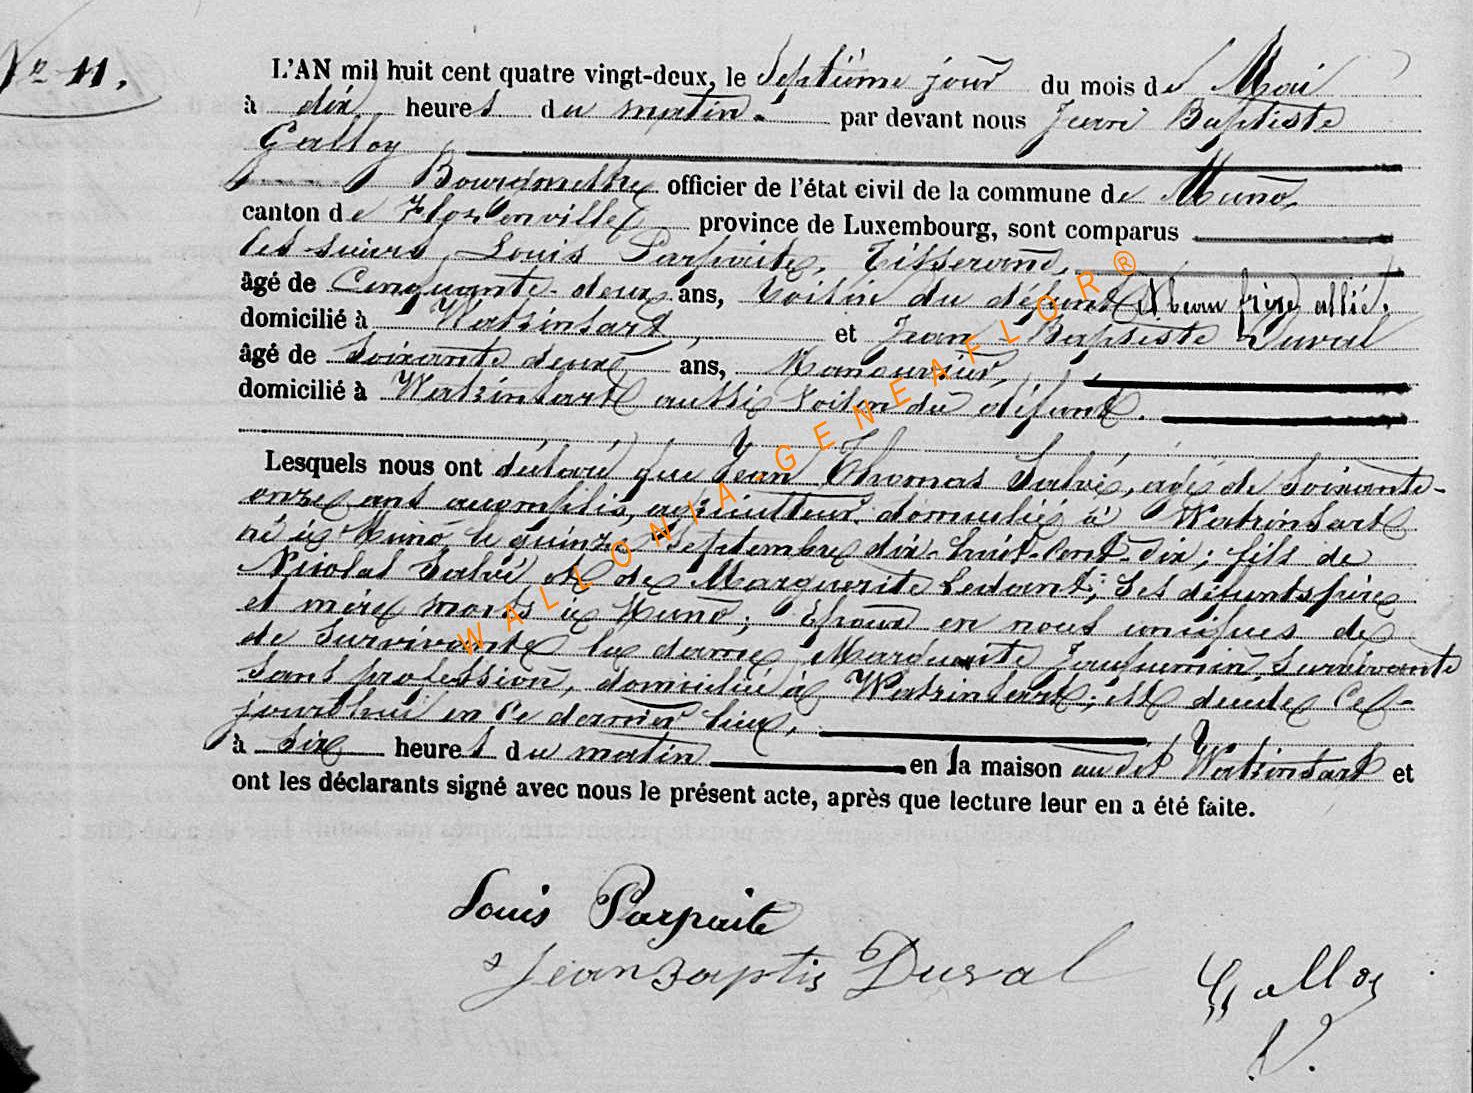 Nº 11.
L'AN mil huit cent quatre vingt-deux, le Septième jour du mois de Mai
à dix heures du matin. par devant nous Jean Baptiste
Galloy
Bourgmestre officier de l'état civil de la commune de Muno,
canton de Florenville province de Luxembourg, sont comparus
les sieurs Louis Parfaite, Tisserand,
âgé de Cinquante-deux ans, voisin du défunt & beau frère allié,
domicilié à Watrinsart, et Jean-Baptiste Duval
âgé de Soixante deux ans, Manouvrier,
domicilié à Watrinsart aussi voisin du défunt.
Lesquels nous ont déclaré que Jean Thomas Salvé, agé de Soixante-
onze ans accomplis, agriculteur, domicilié à Watrinsart
né à Muno le quinze Septembre dix-huit-cent-dix; fils de
Nicolas Salvé et de Marguerite Ledant; Ses défunts père
et mère morts à Muno; Epoux en nous
de Survivante la dame Marguerite Jacquemin, Survivante
Sans profession, domiciliée à Watrinsart; est décédé ce
jourd'hui en ce dernier lieu,
à Six heures du matin en la maison audit Watrinsart et
ont les déclarants signé avec nous le présent acte, après que lecture leur en a été faite.
Louis Parfaite
Jean Baptis Duval
Galloy
WALLONIA-GENEAFLOR®